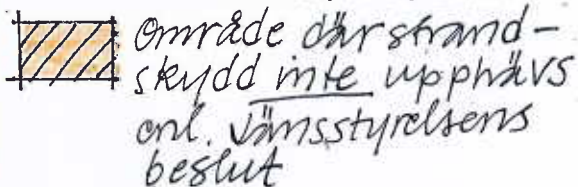 Område där strand-
skydd inte upphävs
enl. Länsstyrelsens
beslut